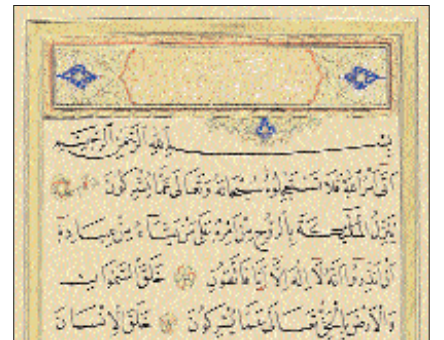 بسم الله الرحمن الرحيم
اتى امر الله فلا تستعجلوه سبحانه وتعالى عما يشركون
ينزل الملئكة بالروح من امره على من يشاء من عباده
ان انذروا انه لا اله الا انا فاتقون خلق السموات
والارض بالحق تعالى عما يشركون خلق الانسان